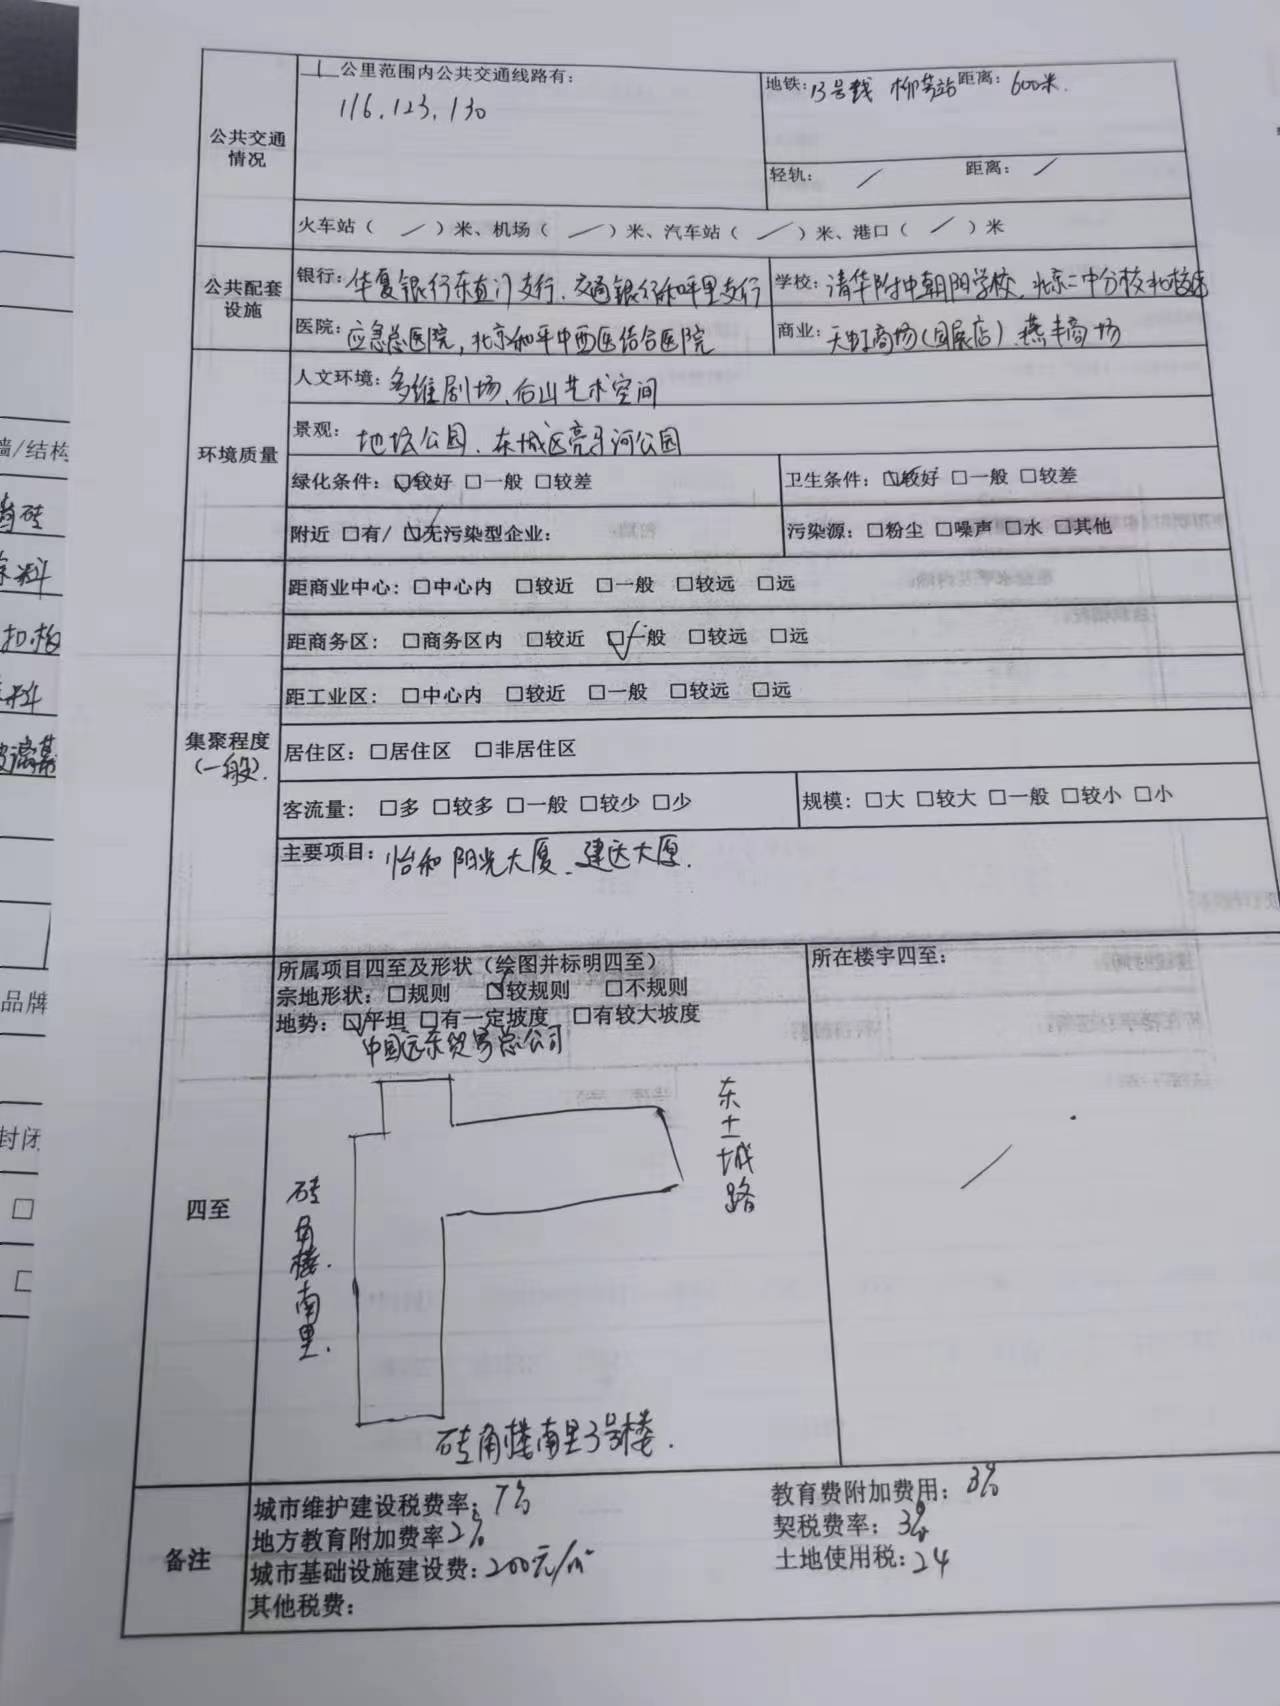 公共交通情况
1 公里范围内公共交通线路有：
116.123.130
地铁：13号线 柳芳站 距离：600米.
轻轨： / 距离： /
火车站（ / ）米、机场（ / ）米、汽车站（ / ）米、港口（ / ）米
公共配套设施
银行：华夏银行东直门支行、交通银行和平里支行
学校：清华附中朝阳学校、北京二中分校北校区
医院：应急总医院，北京和平中西医结合医院
商业：天虹商场（国展店）、燕丰商场
环境质量
人文环境：多维剧场、后山艺术空间
景观：地坛公园、东城区亮马河公园
绿化条件：☑较好 □一般 □较差
卫生条件：☑较好 □一般 □较差
附近 □有/ ☑无污染型企业：
污染源：□粉尘 □噪声 □水 □其他
集聚程度
（一般）.
距商业中心：□中心内 □较近 □一般 □较远 □远
距商务区：□商务区内 □较近 ☑一般 □较远 □远
距工业区：□中心内 □较近 □一般 □较远 □远
居住区：□居住区 □非居住区
客流量：□多 □较多 □一般 □较少 □少
规模：□大 □较大 □一般 □较小 □小
主要项目：怡和阳光大厦、建达大厦.
四至
所属项目四至及形状（绘图并标明四至）
宗地形状：□规则 ☑较规则 □不规则
地势：☑平坦 □有一定坡度 □有较大坡度
中国远东贸易总公司
东土城路
砖角楼南里.
砖角楼南里3号楼.
所在楼宇四至：
/
备注
城市维护建设税费率：7%
教育费附加费用：3%
地方教育附加费率2%
契税费率：3%
城市基础设施建设费：200元/㎡
土地使用税：24
其他税费：
墙/结构
涂料
扣板
品牌
封闭